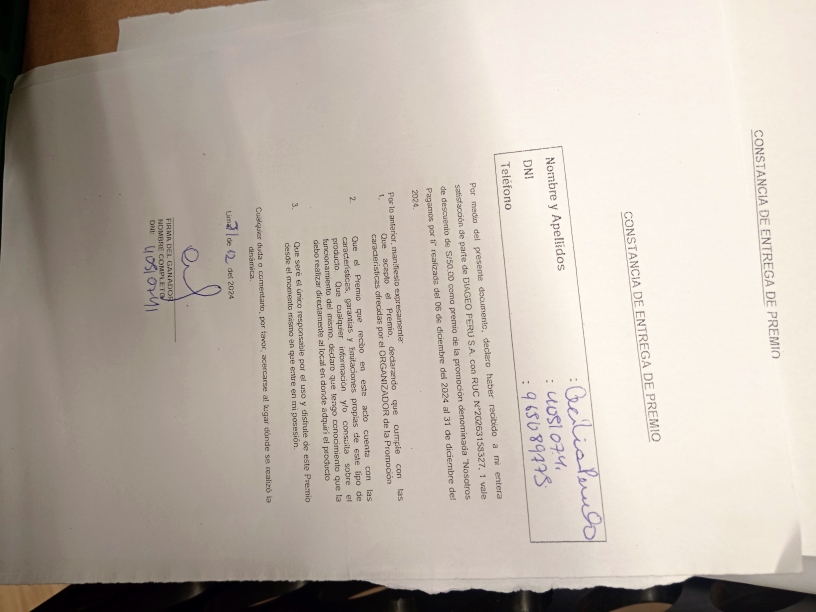 CONSTANCIA DE ENTREGA DE PREMIO
CONSTANCIA DE ENTREGA DE PREMIO
Nombre y Apellidos : Cecilia
DNI : 40510741
Teléfono : 965089173
Por medio del presente documento, declaro haber recibido a mi entera
satisfacción de parte de DIAGEO PERÚ S.A. con RUC N°20263158327, 1 vale
de descuento de S/50.00 como premio de la promoción denominada "Nosotros
Pagamos por ti" realizada del 06 de diciembre del 2024 al 31 de diciembre del
2024.
Por lo anterior, manifiesto expresamente:
1. Que acepto el Premio, declarando que cumple con las
características ofrecidas por el ORGANIZADOR de la Promoción
2. Que el Premio que recibo en este acto cuenta con las
características, garantías y limitaciones propias de este tipo de
producto. Que cualquier información y/o consulta sobre el
funcionamiento del mismo, declaro que tengo conocimiento que la
debo realizar directamente al local en donde adquirí el producto
3. Que seré el único responsable por el uso y disfrute de este Premio
desde el momento mismo en que entre en mi posesión.
Cualquier duda o comentario, por favor, acercarse al lugar dónde se realizó la
dinámica.
Lima 21 de 12 del 2024
FIRMA DEL GANADOR
NOMBRE COMPLETO
DNI: 40510741